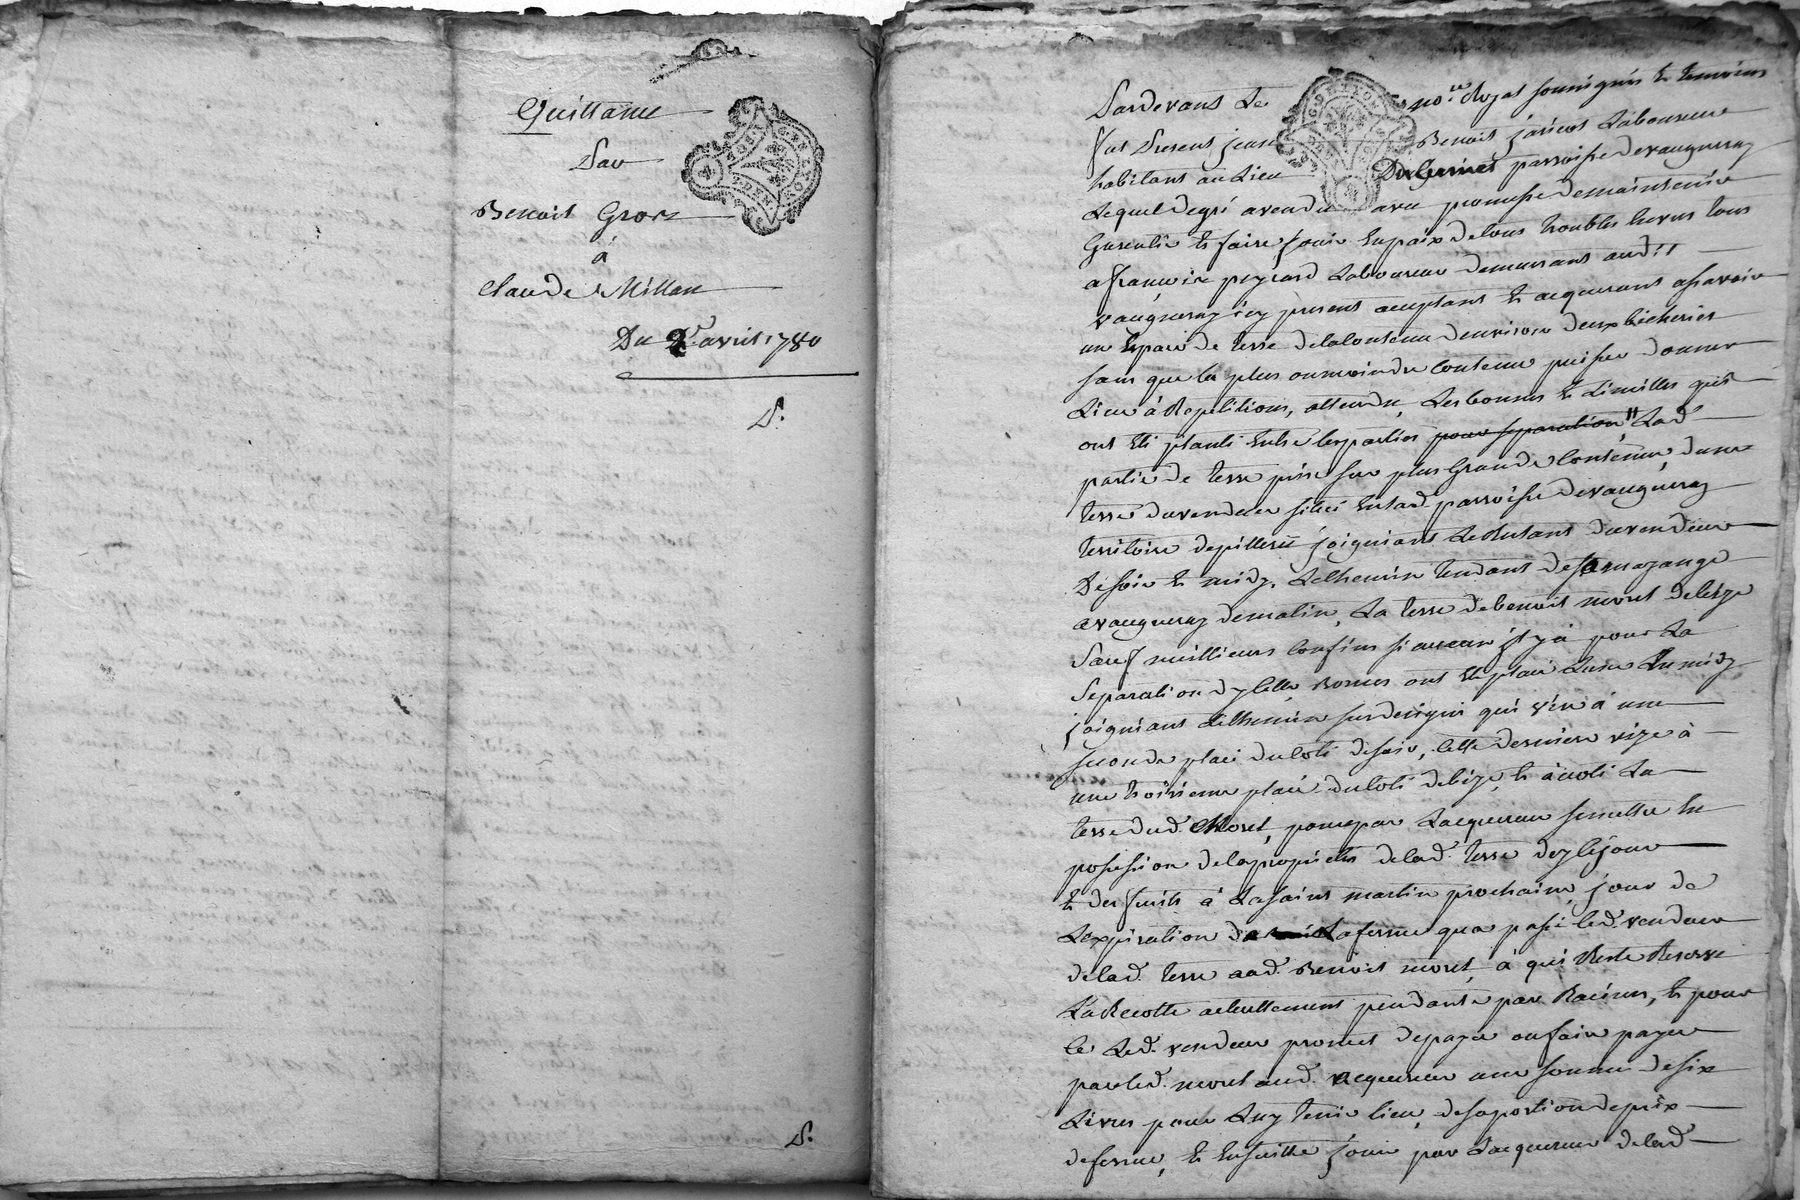 Quittance
Par
Benoit Gros
à
Claude Millan
Du 2.e avril 1780
P.
P.
GEN LYON
2 DEN.
Pardevant Le no.re Royal soussignés et temoins
fut Present jean Benoit jaricot Laboureur
habitant au Lieu Du paroisse de vaugneray
Lequel de gré a vendu avec promesse de maintenir
Garentir et faire jouir en paix de tous troubles envers tous
a françois peyrard Laboureur demeurant audit
vaugneray icy present acceptant et acquerant asavoir
un espace de terre de la contenue denviron deux bicherées
sans que le plus ou moindre contenue puisse donner
Lieu à Repetitions, attendu Les bornes et Limittes qui
ont été planté entre les parties pour separation Lad.
partie de terre prise sur plus Grande contenue dune
terre du vendeur situé en lad. parroisse de vaugneray
territoire de joignant Le Restant du vendeur
de soir et midy, Le chemin tendant de
a vaugneray de matin, La terre de benoit moret de bize
Sauf meillieurs confins si aucun jl y à pour La
Separation dycelle, Bornes ont été placé Lune en midy
joignant Le chemin sus designé qui vize à une
seconde placé du coté de soir, cette derniere vize à
une troisieme placé du coté de bize, et à coté La
terre dud. Moret, pour par Lacquereur se mettre en
possession de la proprieté de lad. terre dez ce jour
et des fruits à La saint martin prochaine, jour de
Lexpiration de La ferme qua passé led. vendeur
de lad. terre aud. Benoit moret, à qui Reste Reservé
La Recolte actuellement pendante par Racines, et pour
ce Led. vendeur promet de payer ou faire payer
par led. moret aud. acquereur une somme de six
Livres pour Luy tenir lieu, de sa portion de prix
de ferme, et ensuitte jouir par Lacquereur de lad.